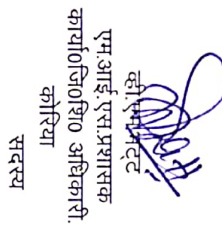 एम.आई.एस.प्रशासक
कार्या०जि०शि० अधिकारी.
कोरिया
सदस्य